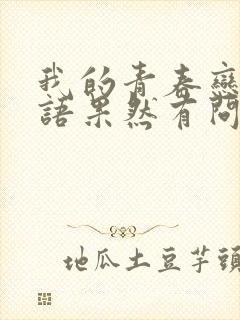 我的青春戀
語果然有問
地瓜土豆芋頭